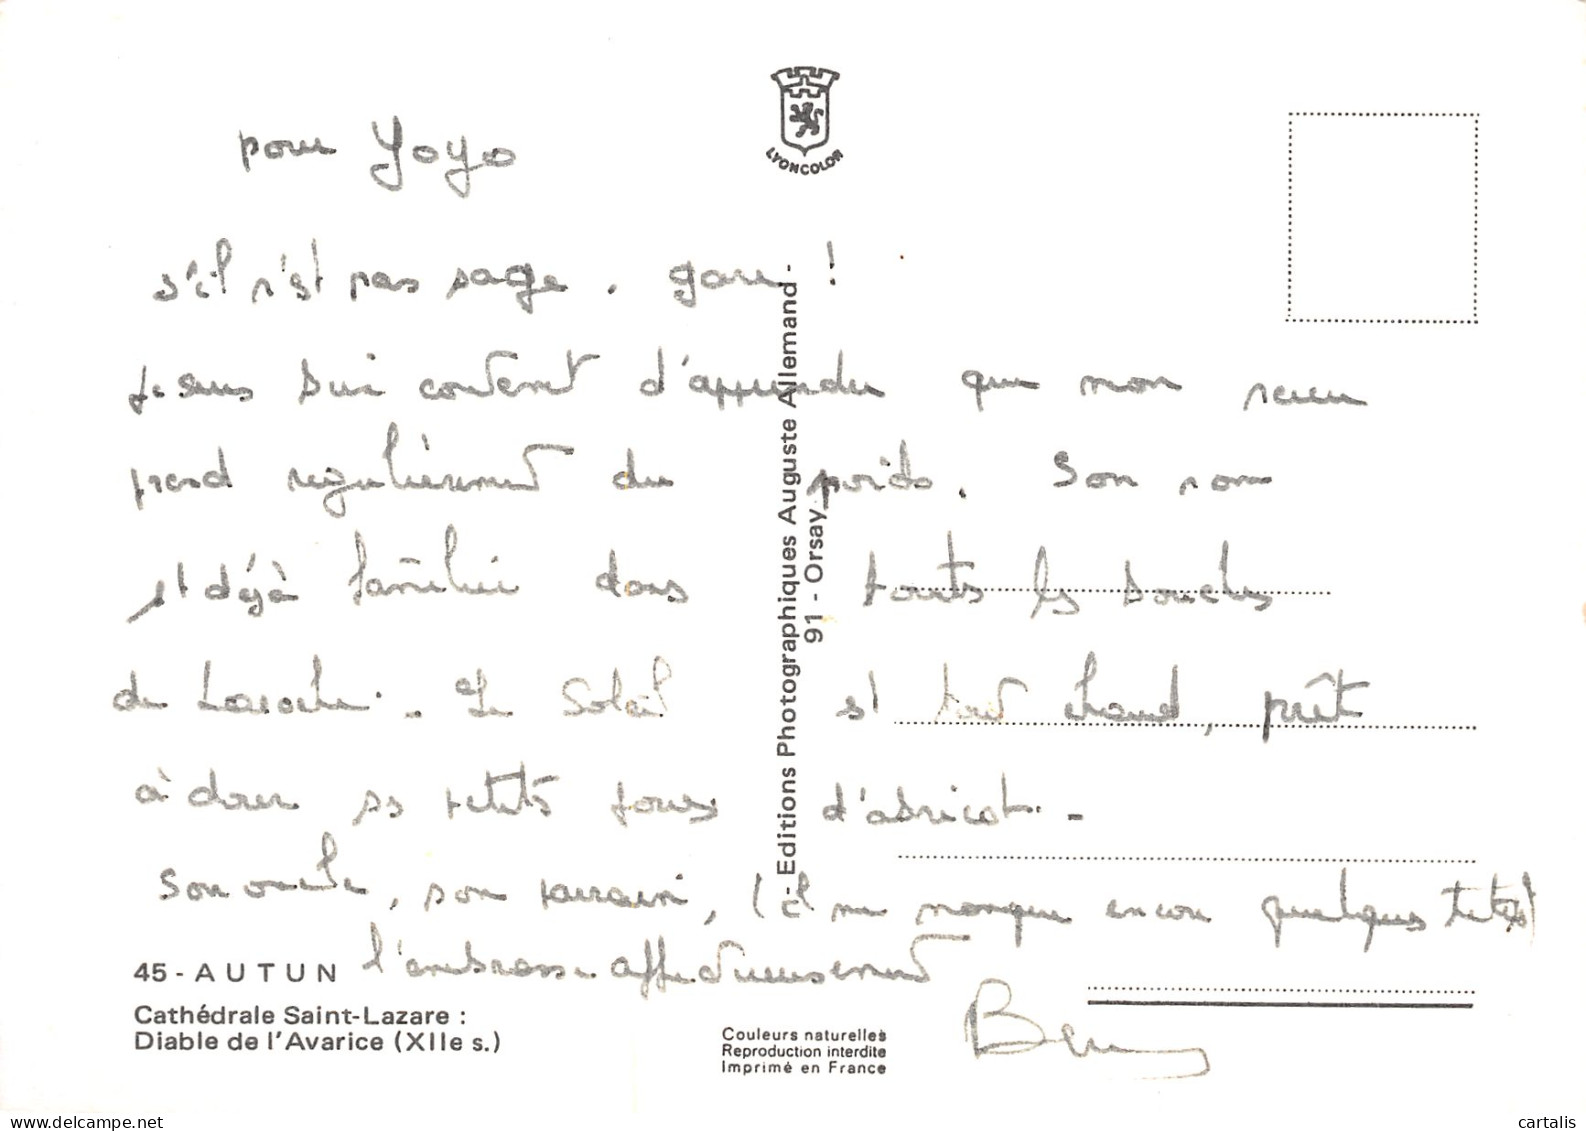 LYONCOLOR
pour Yoyo
s'il n'est pas sage. gare !
Je suis bien content d'apprendre que mon neveu
prend régulièrement du poids. Son nom
est déjà familier dans toutes les bouches
de Laroche. Le Soleil est tout chaud, prêt
à dorer ses petites joues d'abricot. -
Son oncle, son parrain, (il me manque encore quelques titres)
l'embrasse affectueusement
- Editions Photographiques Auguste Allemand -
91 - Orsay
45 - AUTUN
Cathédrale Saint-Lazare :
Diable de l'Avarice (XIIe s.)
Couleurs naturelles
Reproduction interdite
Imprimé en France
cartalis